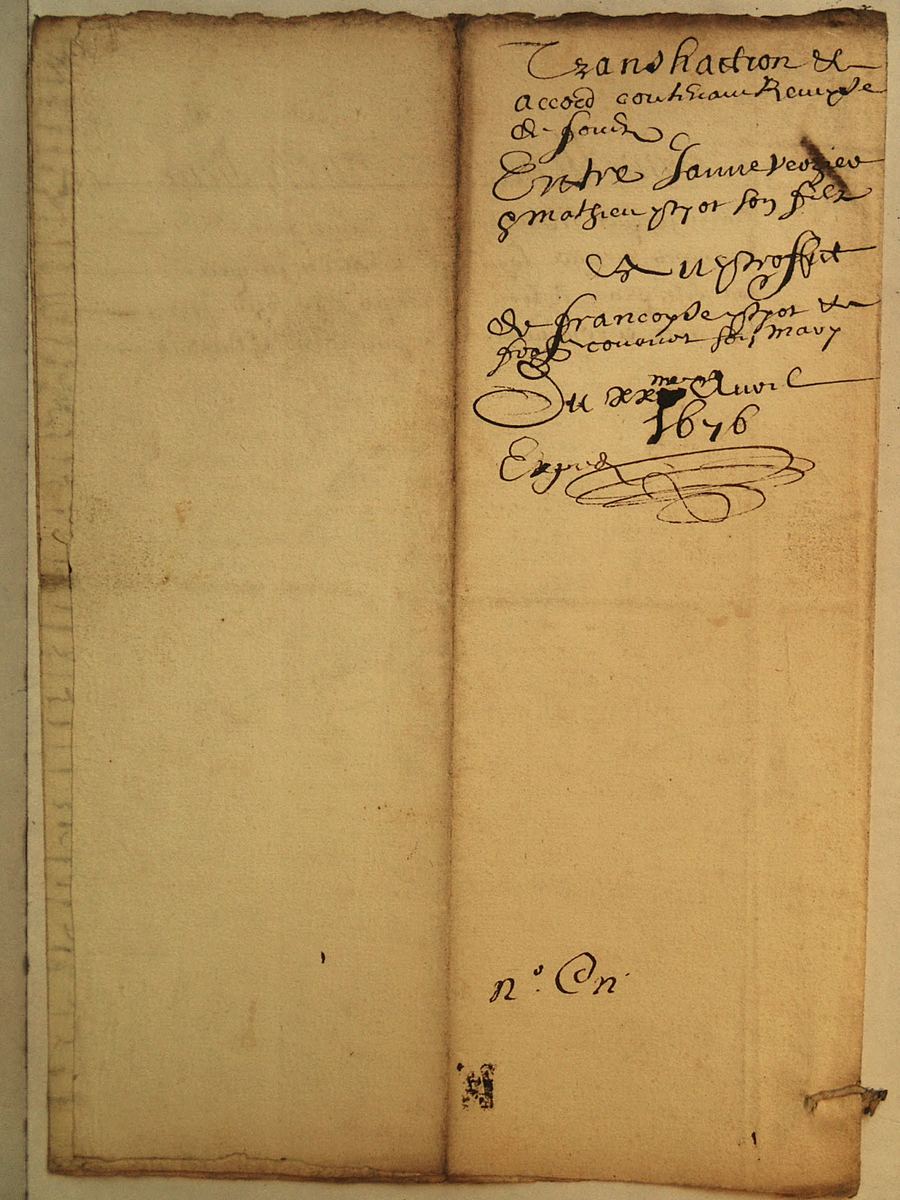 Transhaction &
accord contenant Remyse
de fondz
Entre Janne Verzier
& mathieu pyot son filz
Et au proffit
de francoyse pyot et
son mary
Du xx^me Avril
1676
Exped
n°. @n.